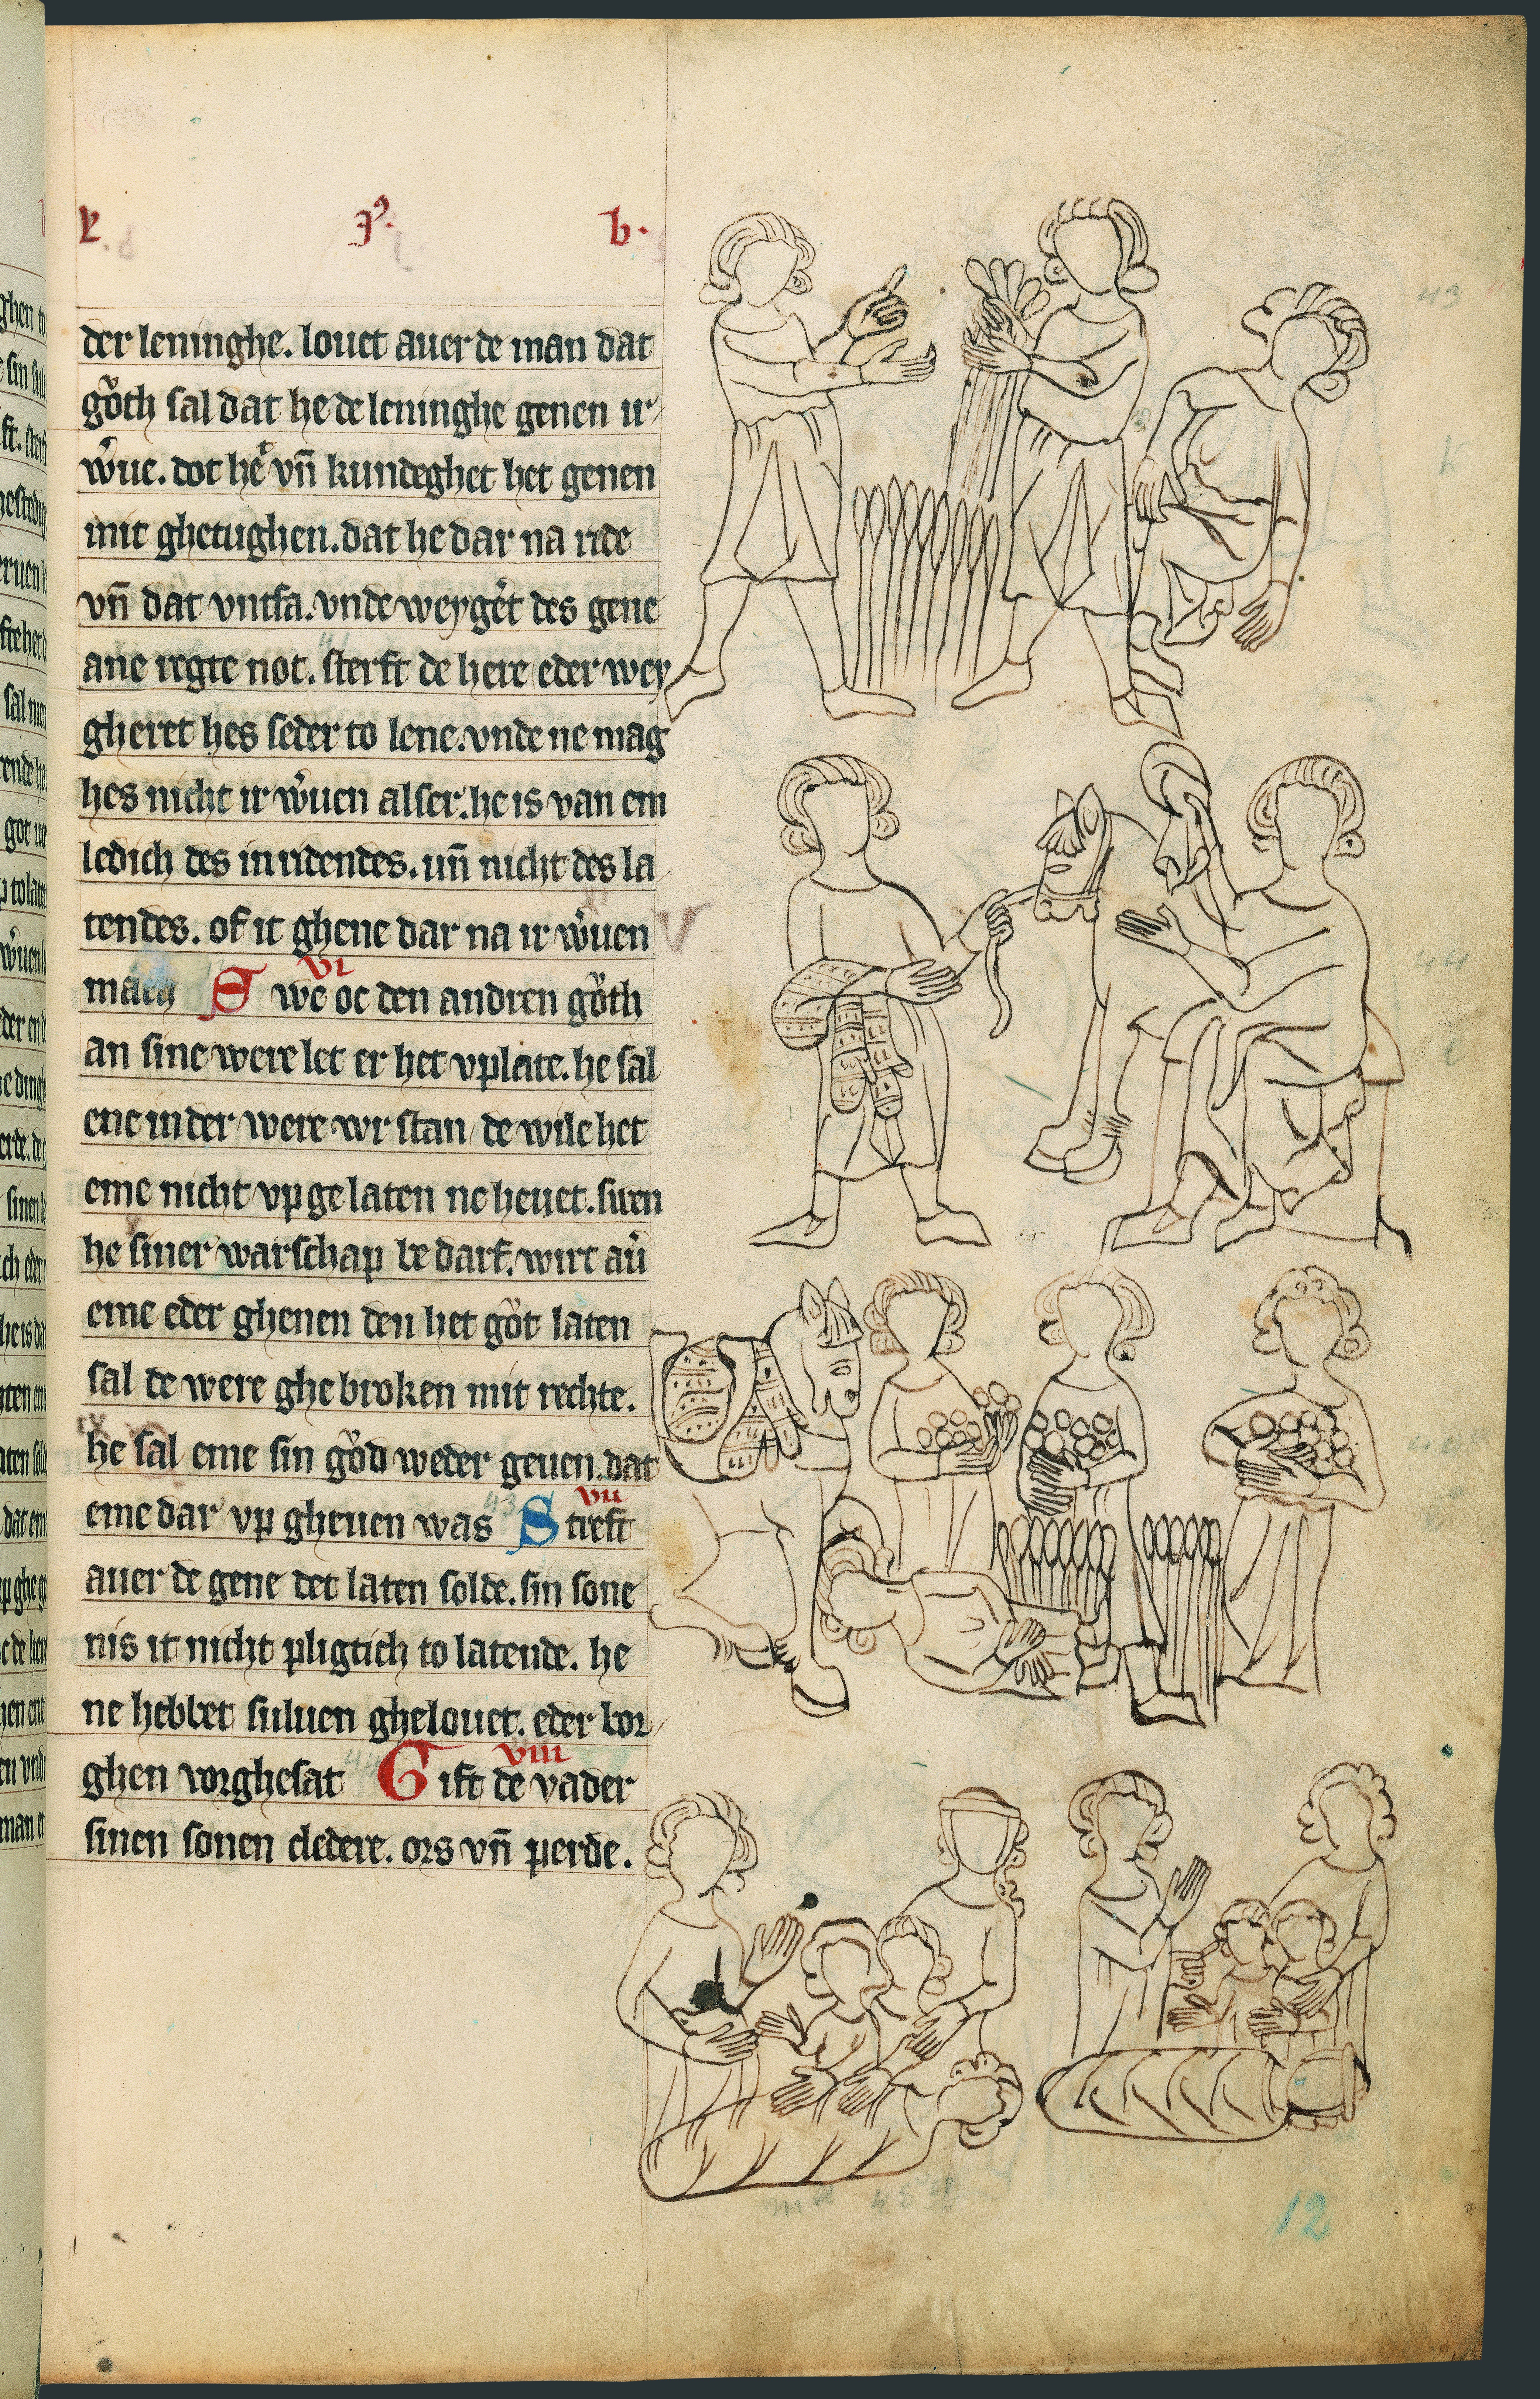 der leninghe. louet auer de man dat
gͦth sal dat he de leninghe genen ir
wͦue. dot he vn̄ kundeghet het genen
mit ghetughen. dat he dar na ride
vn̄ dat vntfa. vnde weyget des gene
ane regte not. sterft de here eder wey
gheret hes seder to lene. vnde ne mag
hes nicht ir wͦuen alser. he is van em
ledich des in ridendes. un̄ nicht des la
tendes. of it ghene dar na ir wͦuen
mach VI Swe oc den andren gͦth
an sine were let er het vplate. he sal
ene in der were vor stan de wile het
eme nicht vp gelaten ne heuet. swen
he siner warschap bedarf. wirt au
eme eder ghenen den het gͦt laten
sal de were ghebroken mit rechte.
he sal eme sin gͦd weder geuen. dat
eme dar vp gheuen was VII Stirft
auer de gene det laten solde. sin sone
nis it nicht pligtich to latende. he
ne hebbet suluen ghelouet. eder bor
ghen vorghesat VIII Gift de vader
sinen sonen cledere. ors vn̄ perde.
43
44
12